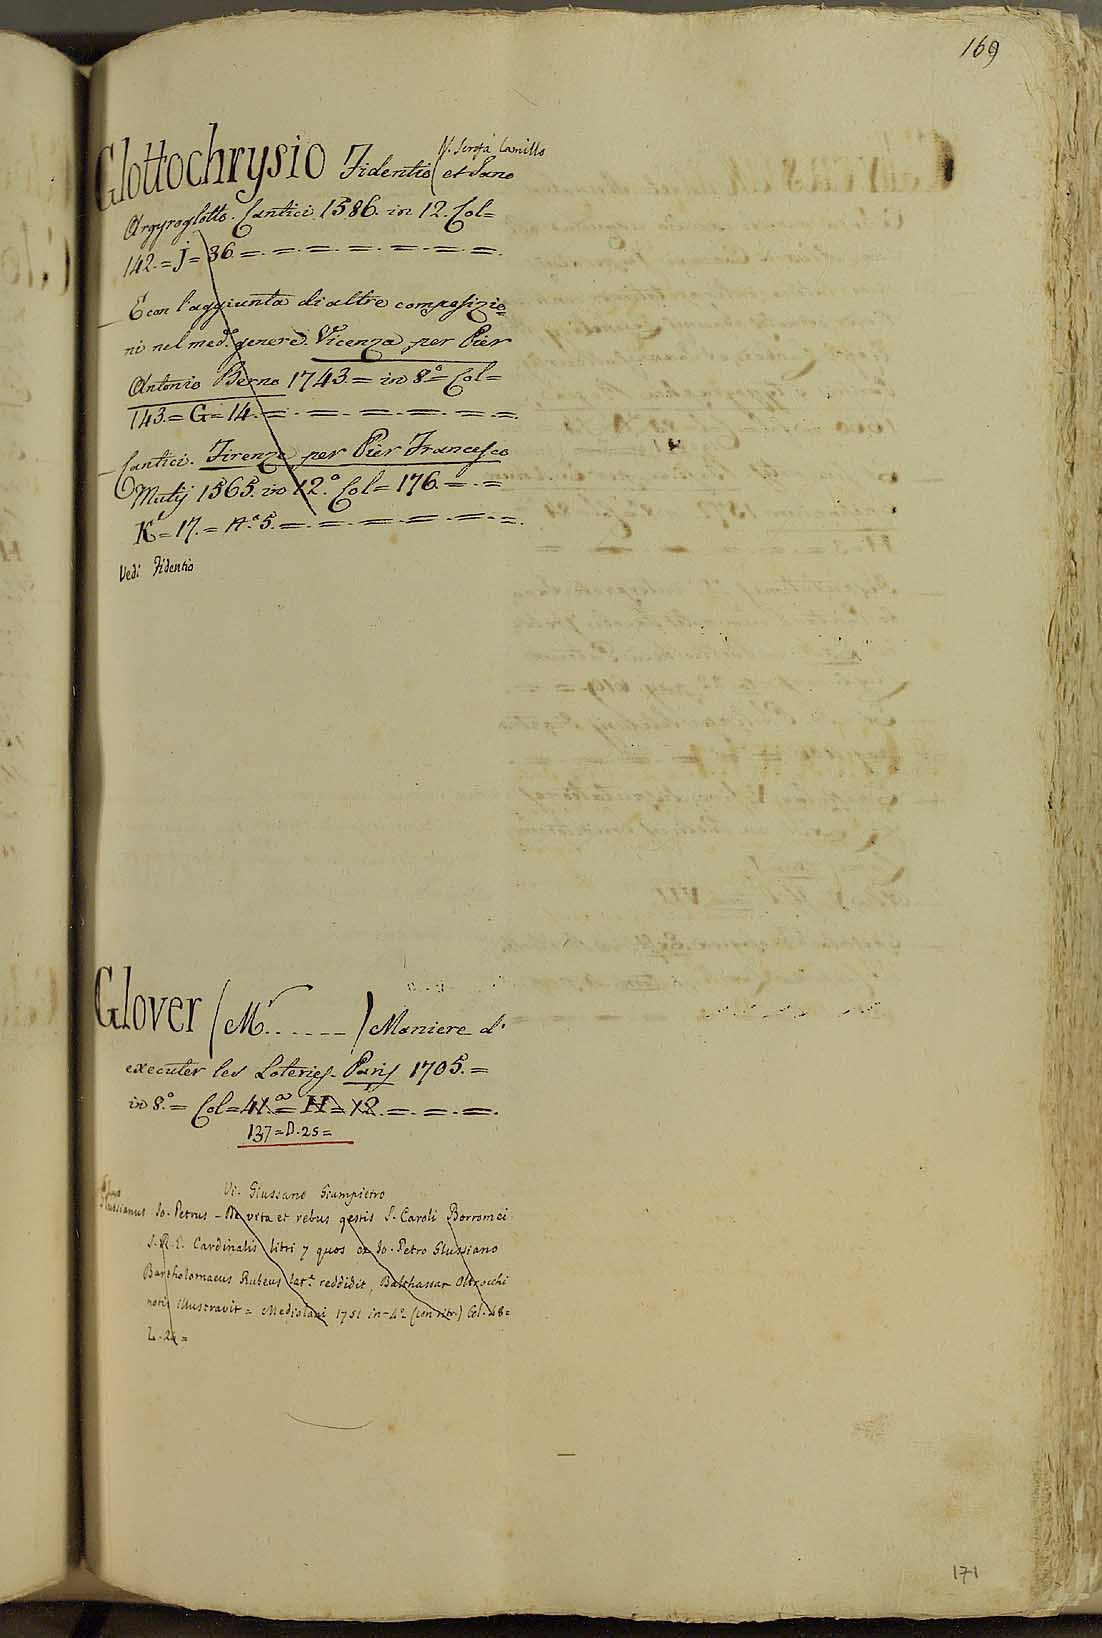 169
V. Scrofa Camillo
Glottochrysio Fidentio (et Jano
Argyroglotto. Cantici 1586. in 12. Col=
142.=j=36.=.=.=.=.=.=.=.
— E con l'aggiunta di altre composizio=
ni nel med.º genere. Vicenza per Pier
Antonio Berno 1743.= in 8.º= Col=
143.= G=14.=.=.=.=.=.=.=.
— Cantici. Firenze per Pier Francesco
Mutij 1565. in 12.º Col=176.=.=
K=17.= N.º 5.=.=.=.=.=.=.
Vedi Fidentio
Glover (M.r ......) Maniere d'
executer les Loteries. Paris 1705.=
in 8.º= Col=41.=H=12.=.=.=.
137=D.25=
Vi. Giussano Giampietro
Glussianus Jo. Petrus - De vita et rebus gestis S. Caroli Borromei
S.R.E. Cardinalis libri 7 quos ex Jo. Petro Glussiano
Bartholomaeus Rubeus lat.e reddidit, Balthassar Oltrocchi
notis illustravit = Mediolani 1751 in-4.º (con ritr.) Col. 48=
L.24=
171